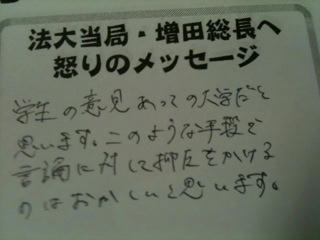 法大当局・増田総長へ
怒りのメッセージ
学生の意見あっての大学だと
思います。このような手段で
言論に対して抑圧をかける
のはおかしいと思います。